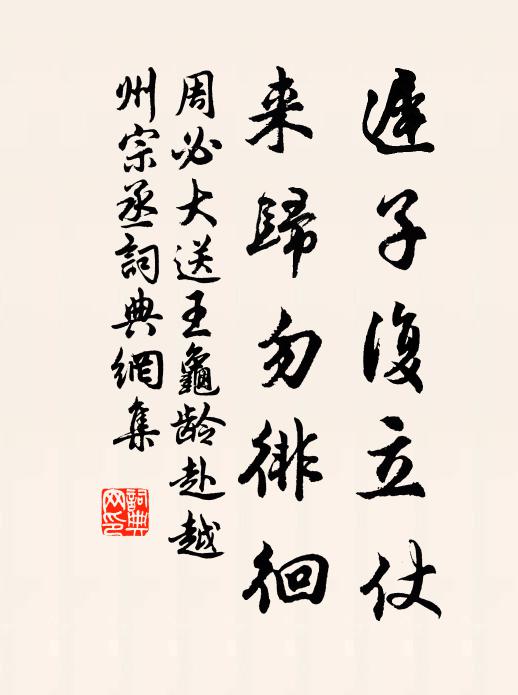 遲子復立仗
来歸勿徘徊
周必大送王龜龄赴越
州宗丞詞典網集
詞典
网印